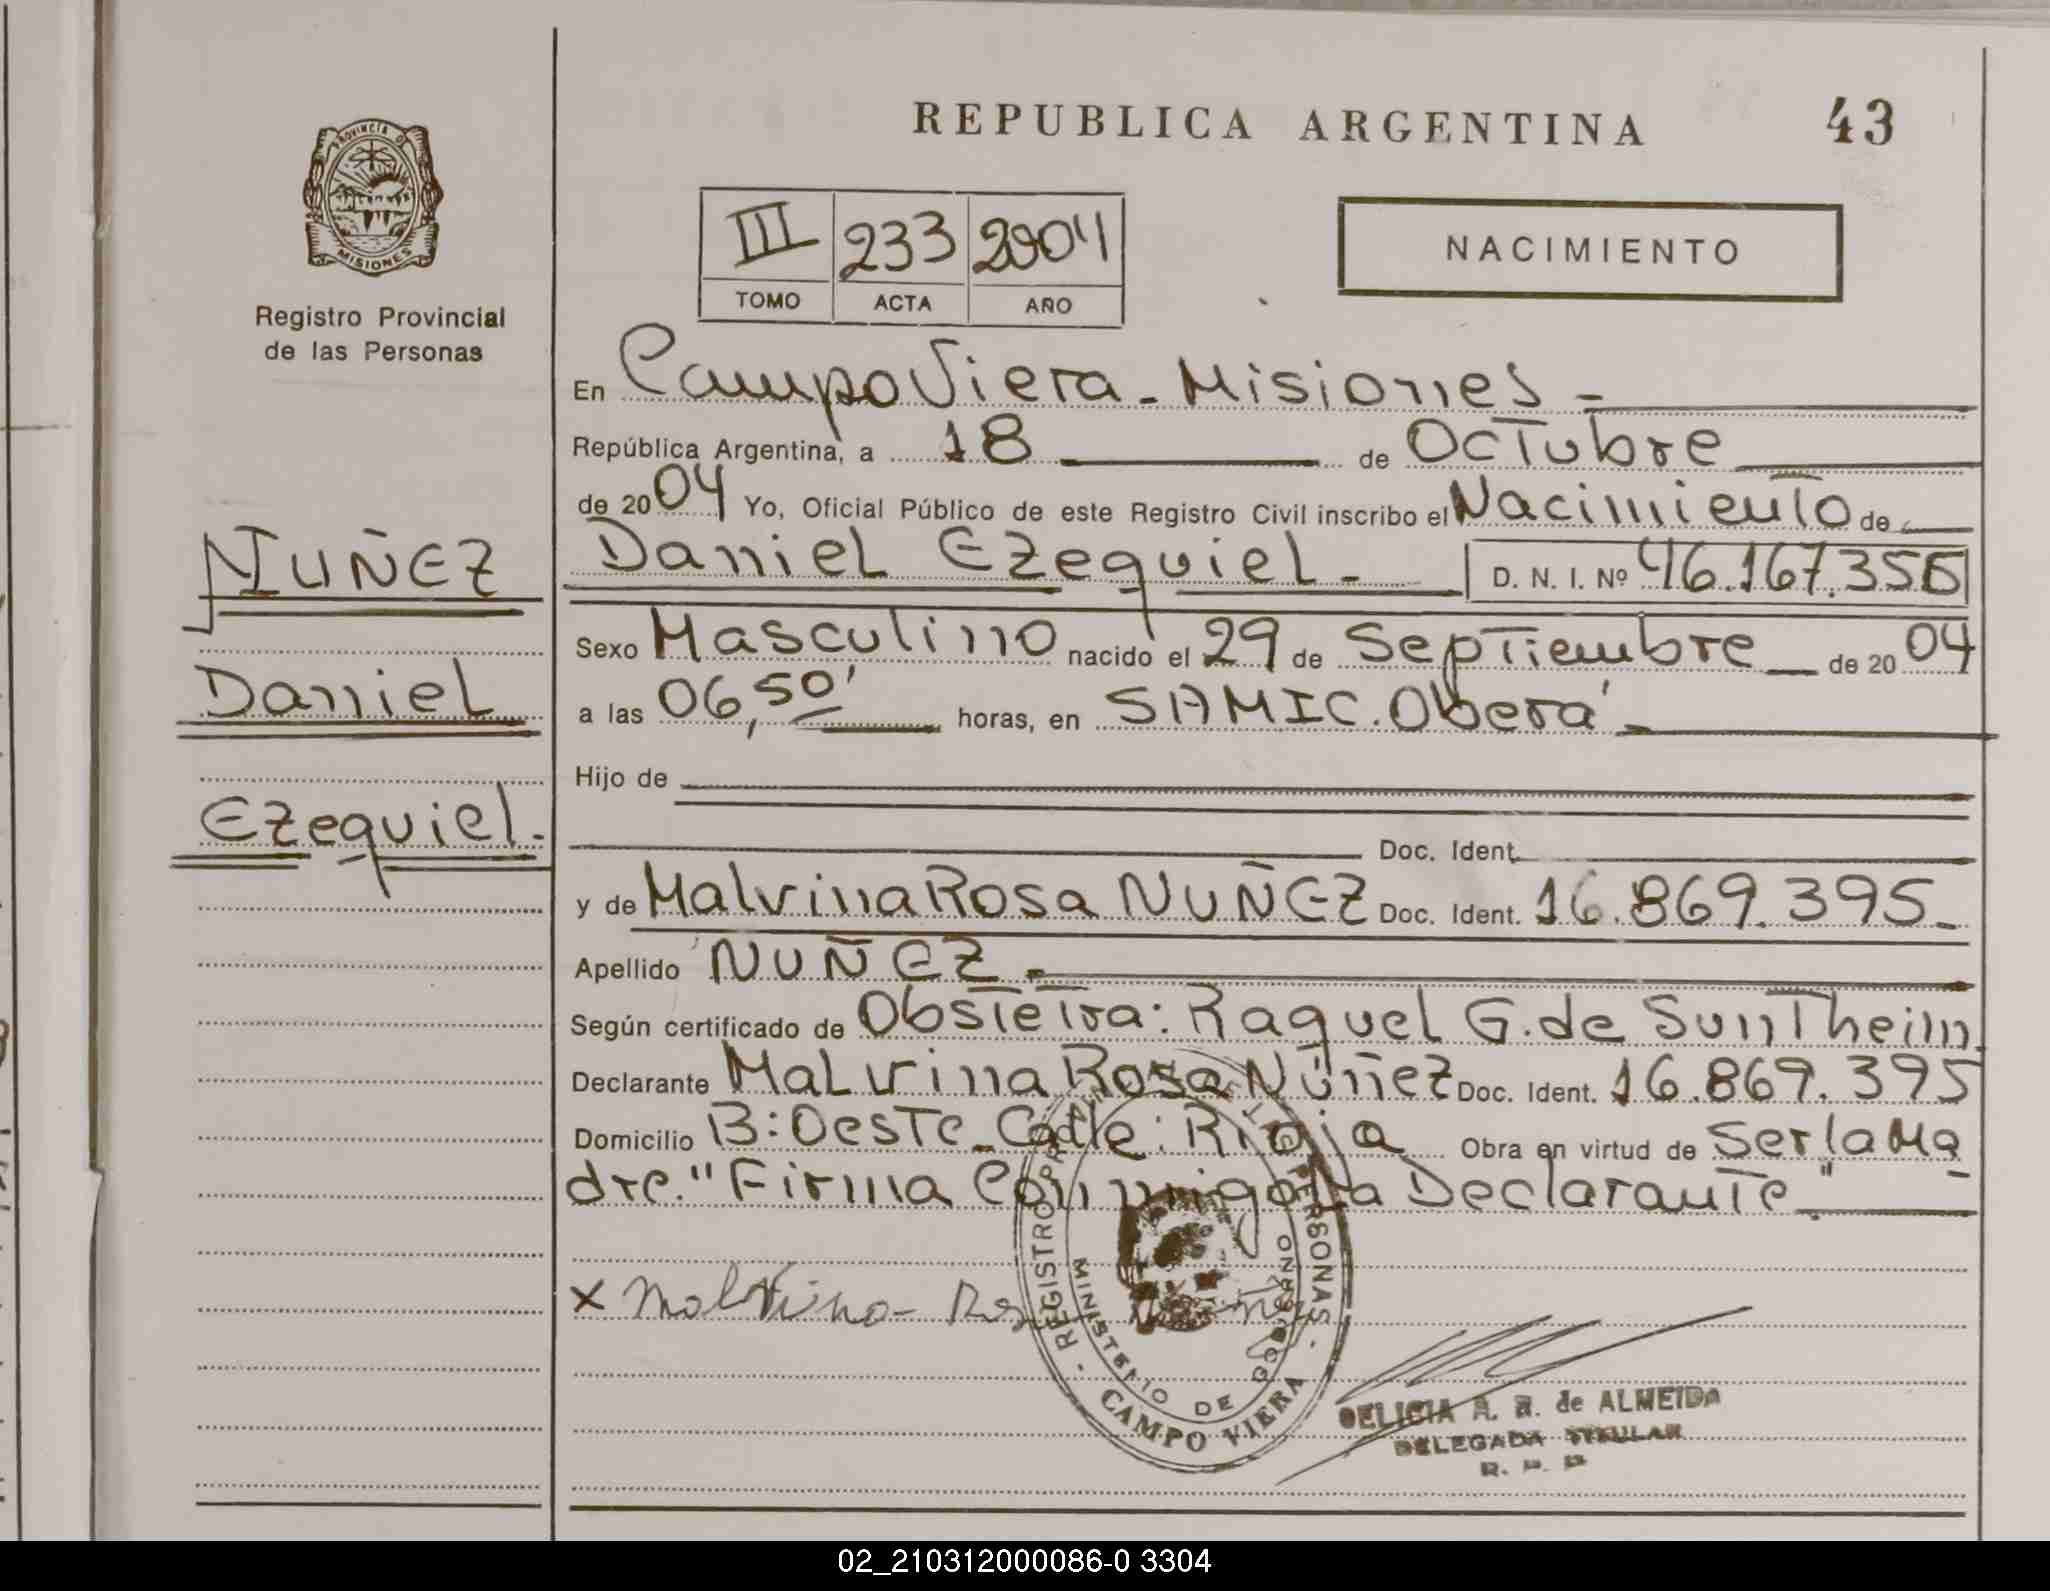 REPUBLICA ARGENTINA
43
PROVINCIA DE
MISIONES
Registro Provincial
de las Personas
III 233 2004
TOMO ACTA AÑO
NACIMIENTO
En Campo Viera - Misiones -
República Argentina, a 18 de Octubre
de 2004 Yo, Oficial Público de este Registro Civil inscribo el Nacimiento de
Daniel Ezequiel - D. N. I. Nº
NUÑEZ
Daniel
Ezequiel.-
Sexo Masculino nacido el 29 de Septiembre de 2004
a las 06,50' horas, en SAMIC. Oberá -
Hijo de
Doc. Ident.
y de Malvina Rosa NUÑEZ Doc. Ident. 16.869.395.-
Apellido NUÑEZ.-
Según certificado de Obstetra: Raquel G. de Suntheim
Declarante Malvina Rosa Núñez Doc. Ident. 16.869.395
Domicilio B: Oeste - Calle: Rioja Obra en virtud de Ser la Ma
dre. "Firma Conmigo la Declarante"
x Malvina - Rosa
- REGISTRO PROVINCIAL DE LAS PERSONAS -
MINISTERIO DE GOBIERNO
CAMPO VIERA
DELICIA A. R. de ALMEIDA
DELEGADA TITULAR
R. P. P
02_210312000086-0 3304